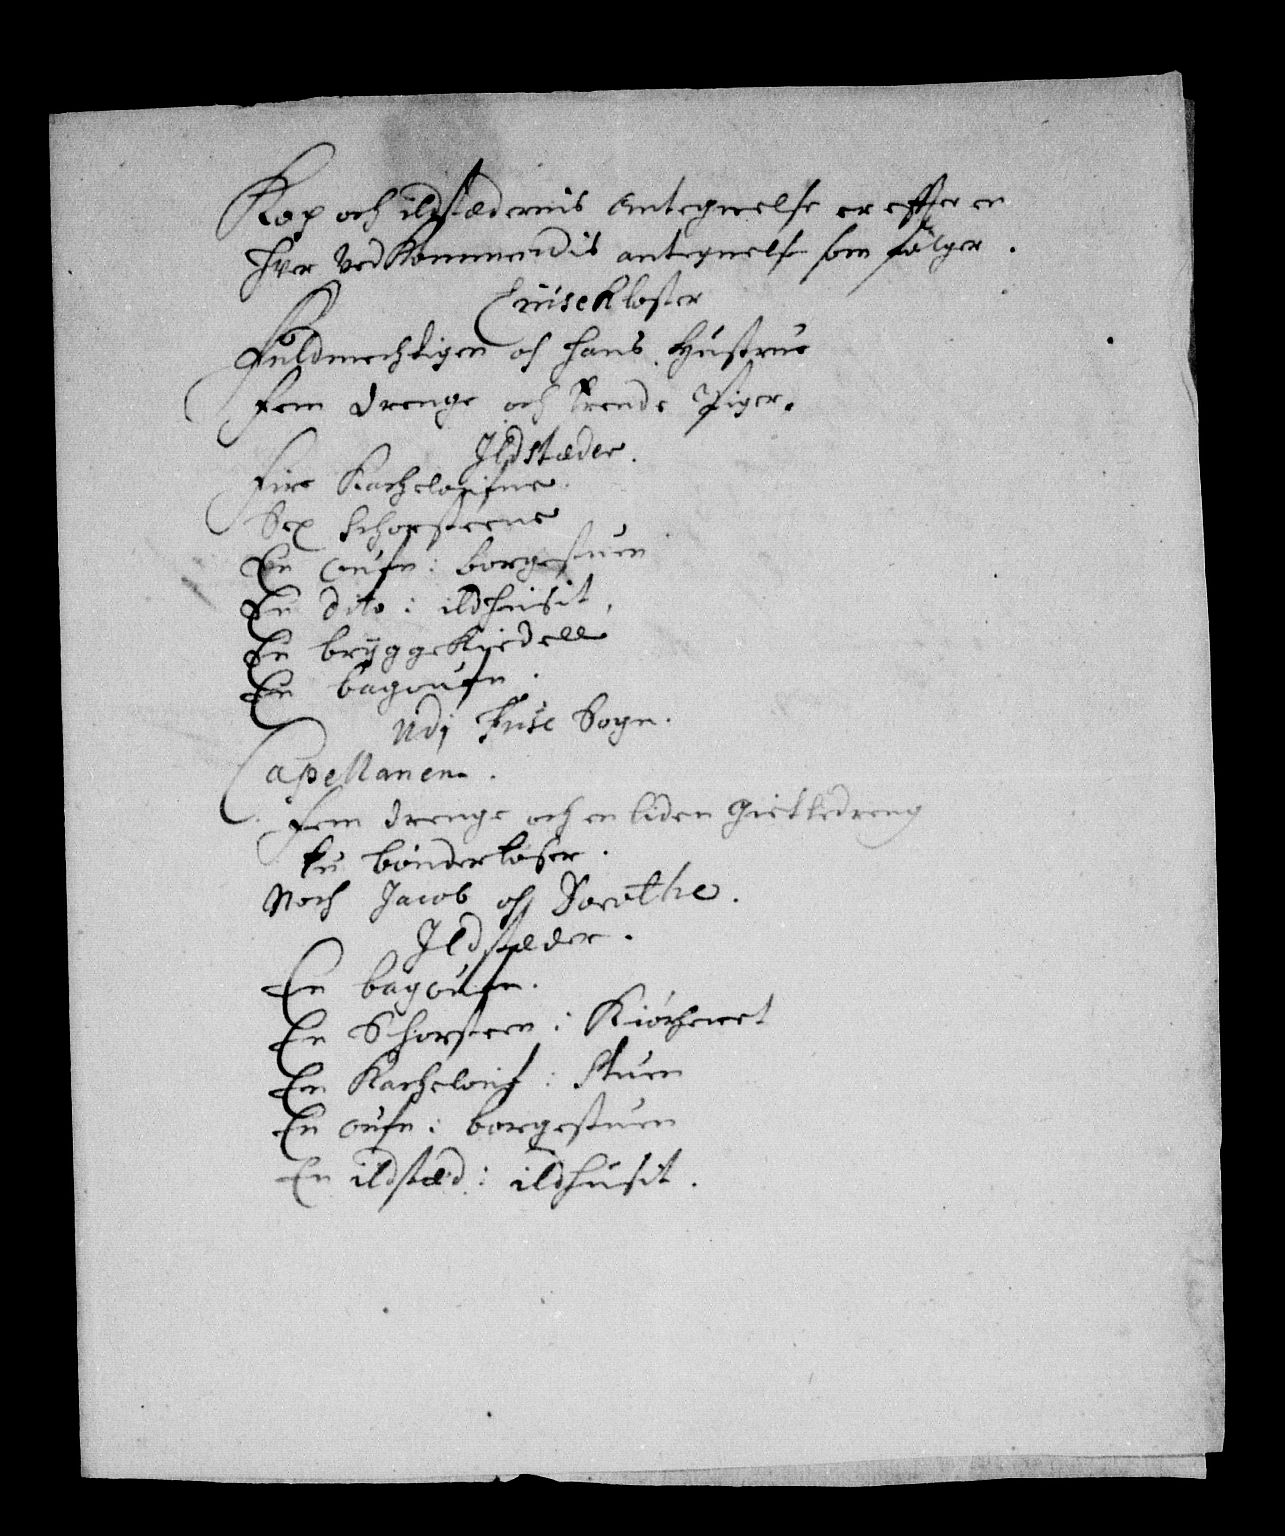 Kop och ildstædernis Antegnelse er effter en
hver vedkommendis antegnelse som følger.
Lüsekloster
Fuldmechtigen och hans Hustrue
fem drenge och trende Piger.
Ildstæder.
Fire Kacheloufne.
Sex schorsteene
En oufn i borgestuen
En dito i ildhusit,
En bryggekiedell
En bagoufn.
Udj Fuse Sogn.
Capellanen.
fem drenge och en liden Gietledreng
tu bønderløser.
Noch Jacob och Dorothe.
Ildstæder.
En bagoufn.
En Schorsteen i Kiøcheret
En Kachelouf i Stuen
En oufn i borgestuen
En ildstæd i ildhusit.